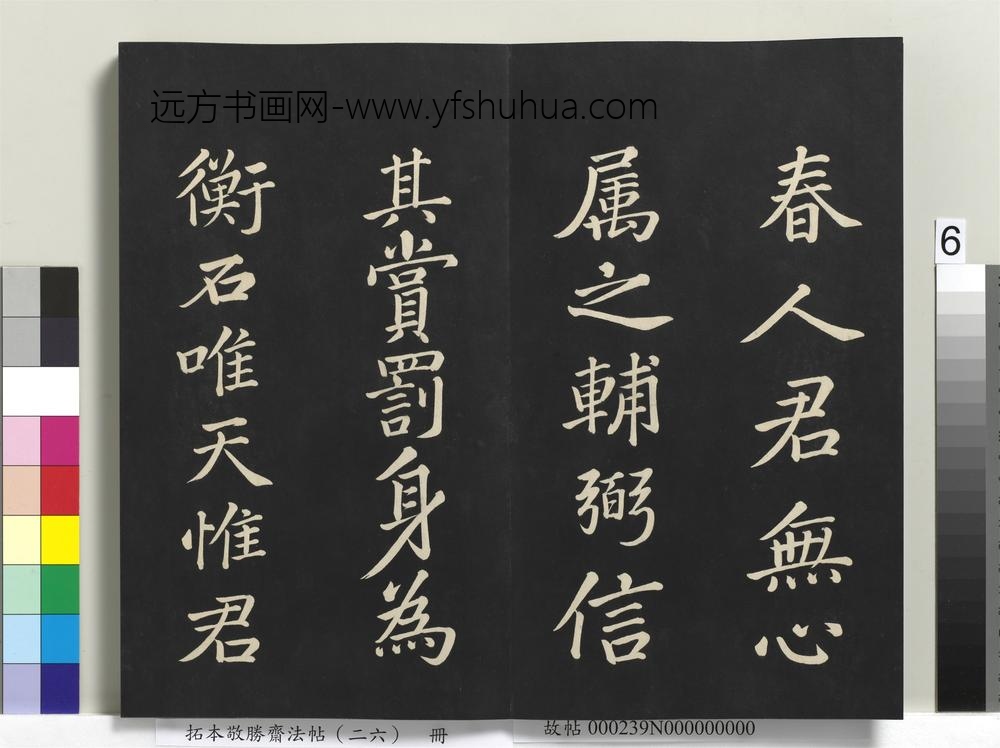 远方书画网-www.yfshuhua.com
春人君無心
属之輔弼信
其賞罰身為
衡石唯天惟君
6
拓本敬勝齋法帖（二六） 冊
故帖 000239N000000000